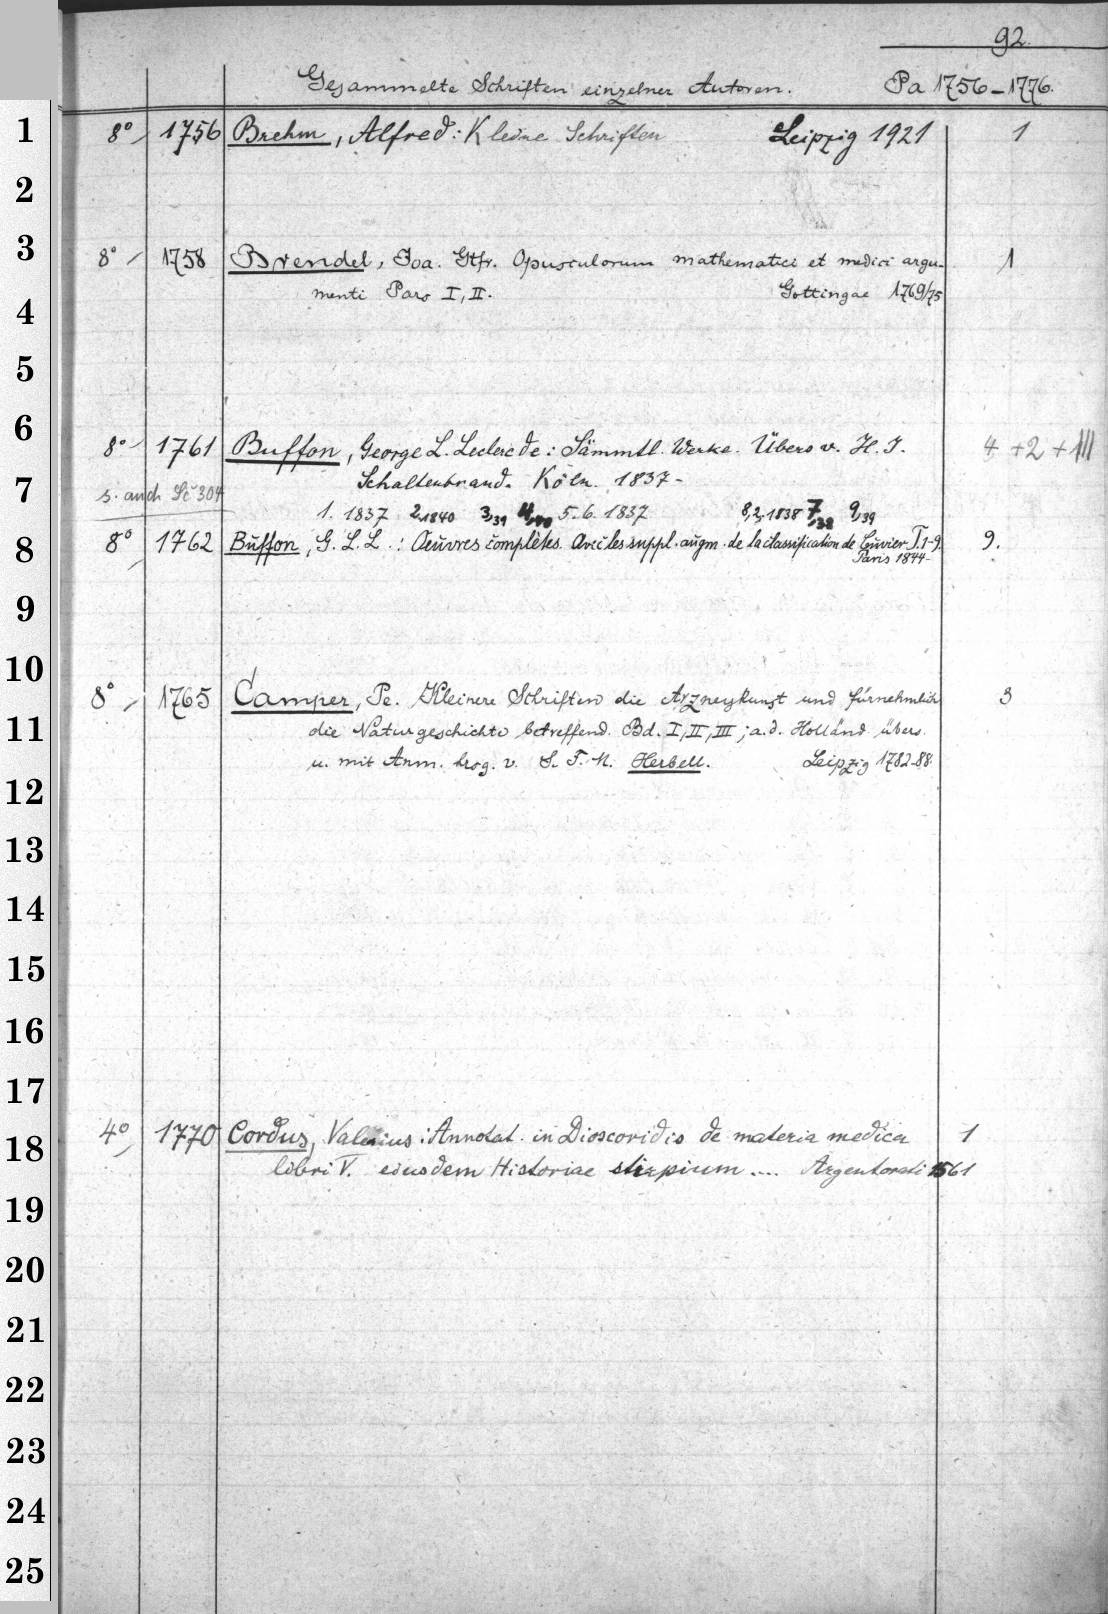 92.
Gesammelte Schriften einzelner Autoren. Pa 1756-1776.
1 8° 1756 Brehm, Alfred: Kleine Schriften Leipzig 1921 1
2
3 8° 1758 Brendel, Joa. Gtfr. Opusculorum mathematici et medici argu- 1
menti Pars I, II. Gottingae 1769/75
4
5
6 8° 1761 Buffon, George L. Leclerc de: Sämmtl. Werke. Übers v. H. J. 4 +2 +III
Schaltenbrand. Köln. 1837-
7 s. auch Sc 304
1. 1837 2,1840 3,39 4,40 5.6. 1837 8,2.1838 7,38 9,39
8 8° 1762 Buffon, G. L. L.: Œuvres complètes. Avec les suppl. augm. de la classification de Cuvier T. 1-9. 9.
Paris 1844-
9
10 8° 1765 Camper, Pe. Kleinere Schriften die Arzneykunst und fürnehmlich 3
11 die Naturgeschichte betreffend. Bd. I, II, III; a. d. Holländ. übers.
u. mit Anm. hrsg. v. S. F. M. Herbell. Leipzig 1782-88.
12
13
14
15
16
17
18 4° 1770 Cordus, Valerius: Annotat. in Dioscoridis de materia medica 1
libri V. eiusdem Historiae stirpium .... Argentorati 1561
19
20
21
22
23
24
25